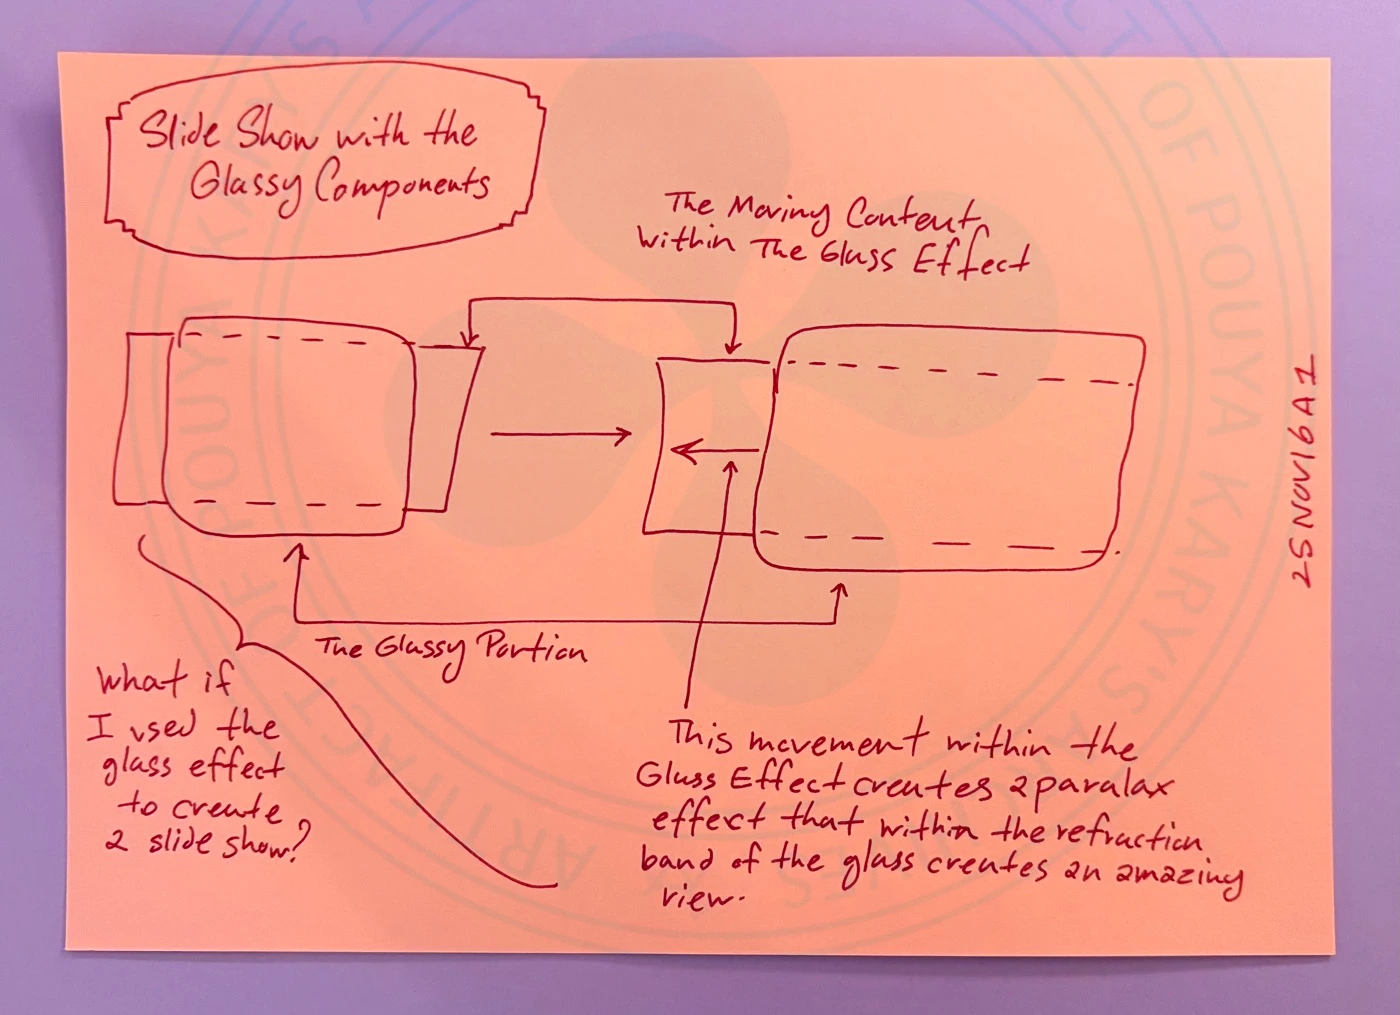 Slide Show with the
Glassy Components
The Moving Content
within The Glass Effect
The Glassy Portion
What if
I used the
glass effect
to create
a slide show?
This movement within the
Glass Effect creates a paralax
effect that within the refraction
band of the glass creates an amazing
view.
25NOV16A1
ARTIFACT OF POUYA KARY'S
ARTIFACT OF POUYA KARY'S